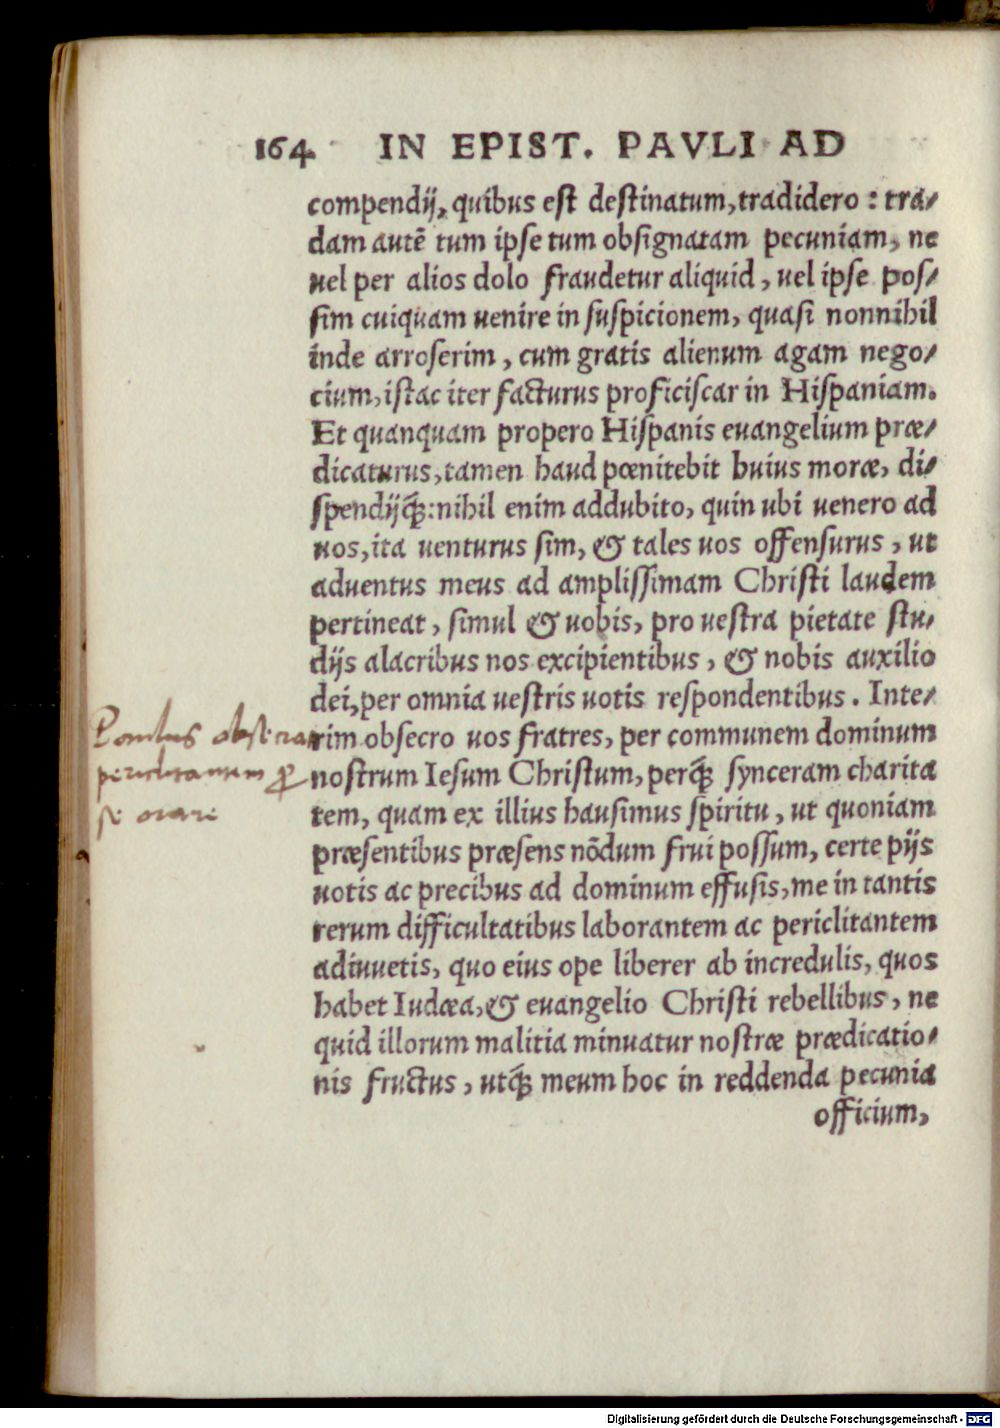 164 IN EPIST. PAVLI AD
compendij, quibus est destinatum, tradidero : tra-
dam autē tum ipse tum obsignatam pecuniam, ne
uel per alios dolo fraudetur aliquid, uel ipse pos-
sim cuiquam uenire in suspicionem, quasi nonnihil
inde arroserim, cum gratis alienum agam nego-
cium, istac iter facturus proficiscar in Hispaniam.
Et quanquam propero Hispanis euangelium præ-
dicaturus, tamen haud pœnitebit huius moræ, di-
spendijq́;: nihil enim addubito, quin ubi uenero ad
uos, ita uenturus sim, & tales uos offensurus, ut
aduentus meus ad amplissimam Christi laudem
pertineat, simul & uobis, pro uestra pietate stu-
dijs alacribus nos excipientibus, & nobis auxilio
dei, per omnia uestris uotis respondentibus. Inte-
rim obsecro uos fratres, per communem dominum
nostrum Iesum Christum, perq́; synceram charita
tem, quam ex illius hausimus spiritu, ut quoniam
præsentibus præsens nōdum frui possum, certe pijs
uotis ac precibus ad dominum effusis, me in tantis
rerum difficultatibus laborantem ac periclitantem
adiuuetis, quo eius ope liberer ab incredulis, quos
habet Iudæa, & euangelio Christi rebellibus, ne
quid illorum malitia minuatur nostræ prædicatio-
nis fructus, utq́; meum hoc in reddenda pecunia
officium,
Paulus obsecrat
periclitantem ꝓ
se orare
Digitalisierung gefördert durch die Deutsche Forschungsgemeinschaft - DFG